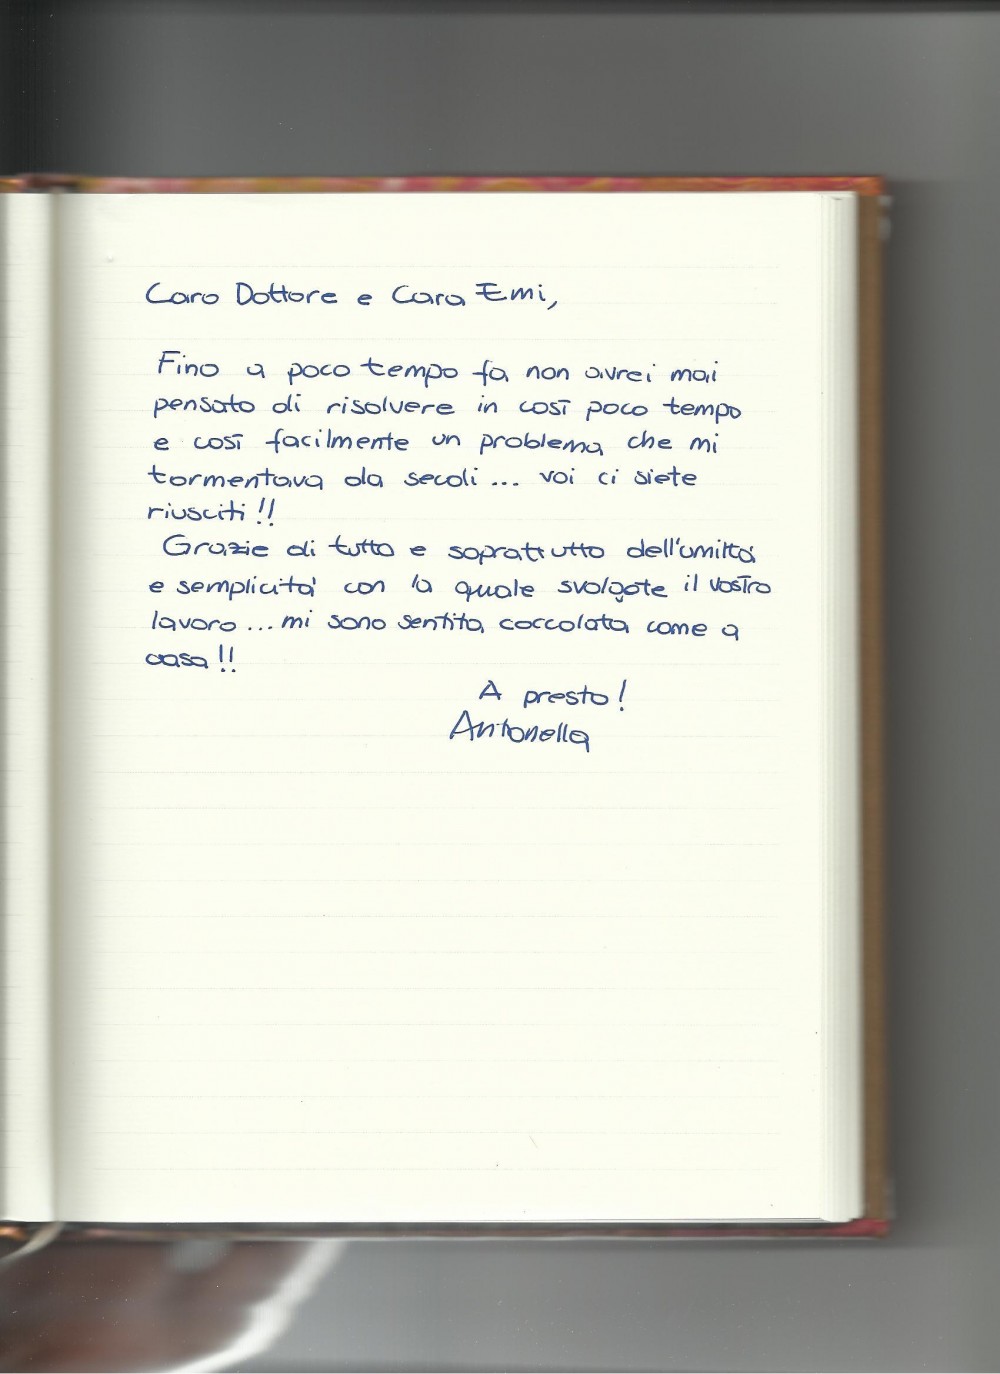 Caro Dottore e Cara Emi,
Fino a poco tempo fa non avrei mai
pensato di risolvere in così poco tempo
e così facilmente un problema che mi
tormentava da secoli... voi ci siete
riusciti!!
Grazie di tutto e soprattutto dell'umiltà
e semplicità con la quale svolgete il vostro
lavoro... mi sono sentita coccolata come a
casa!!
A presto!
Antonella